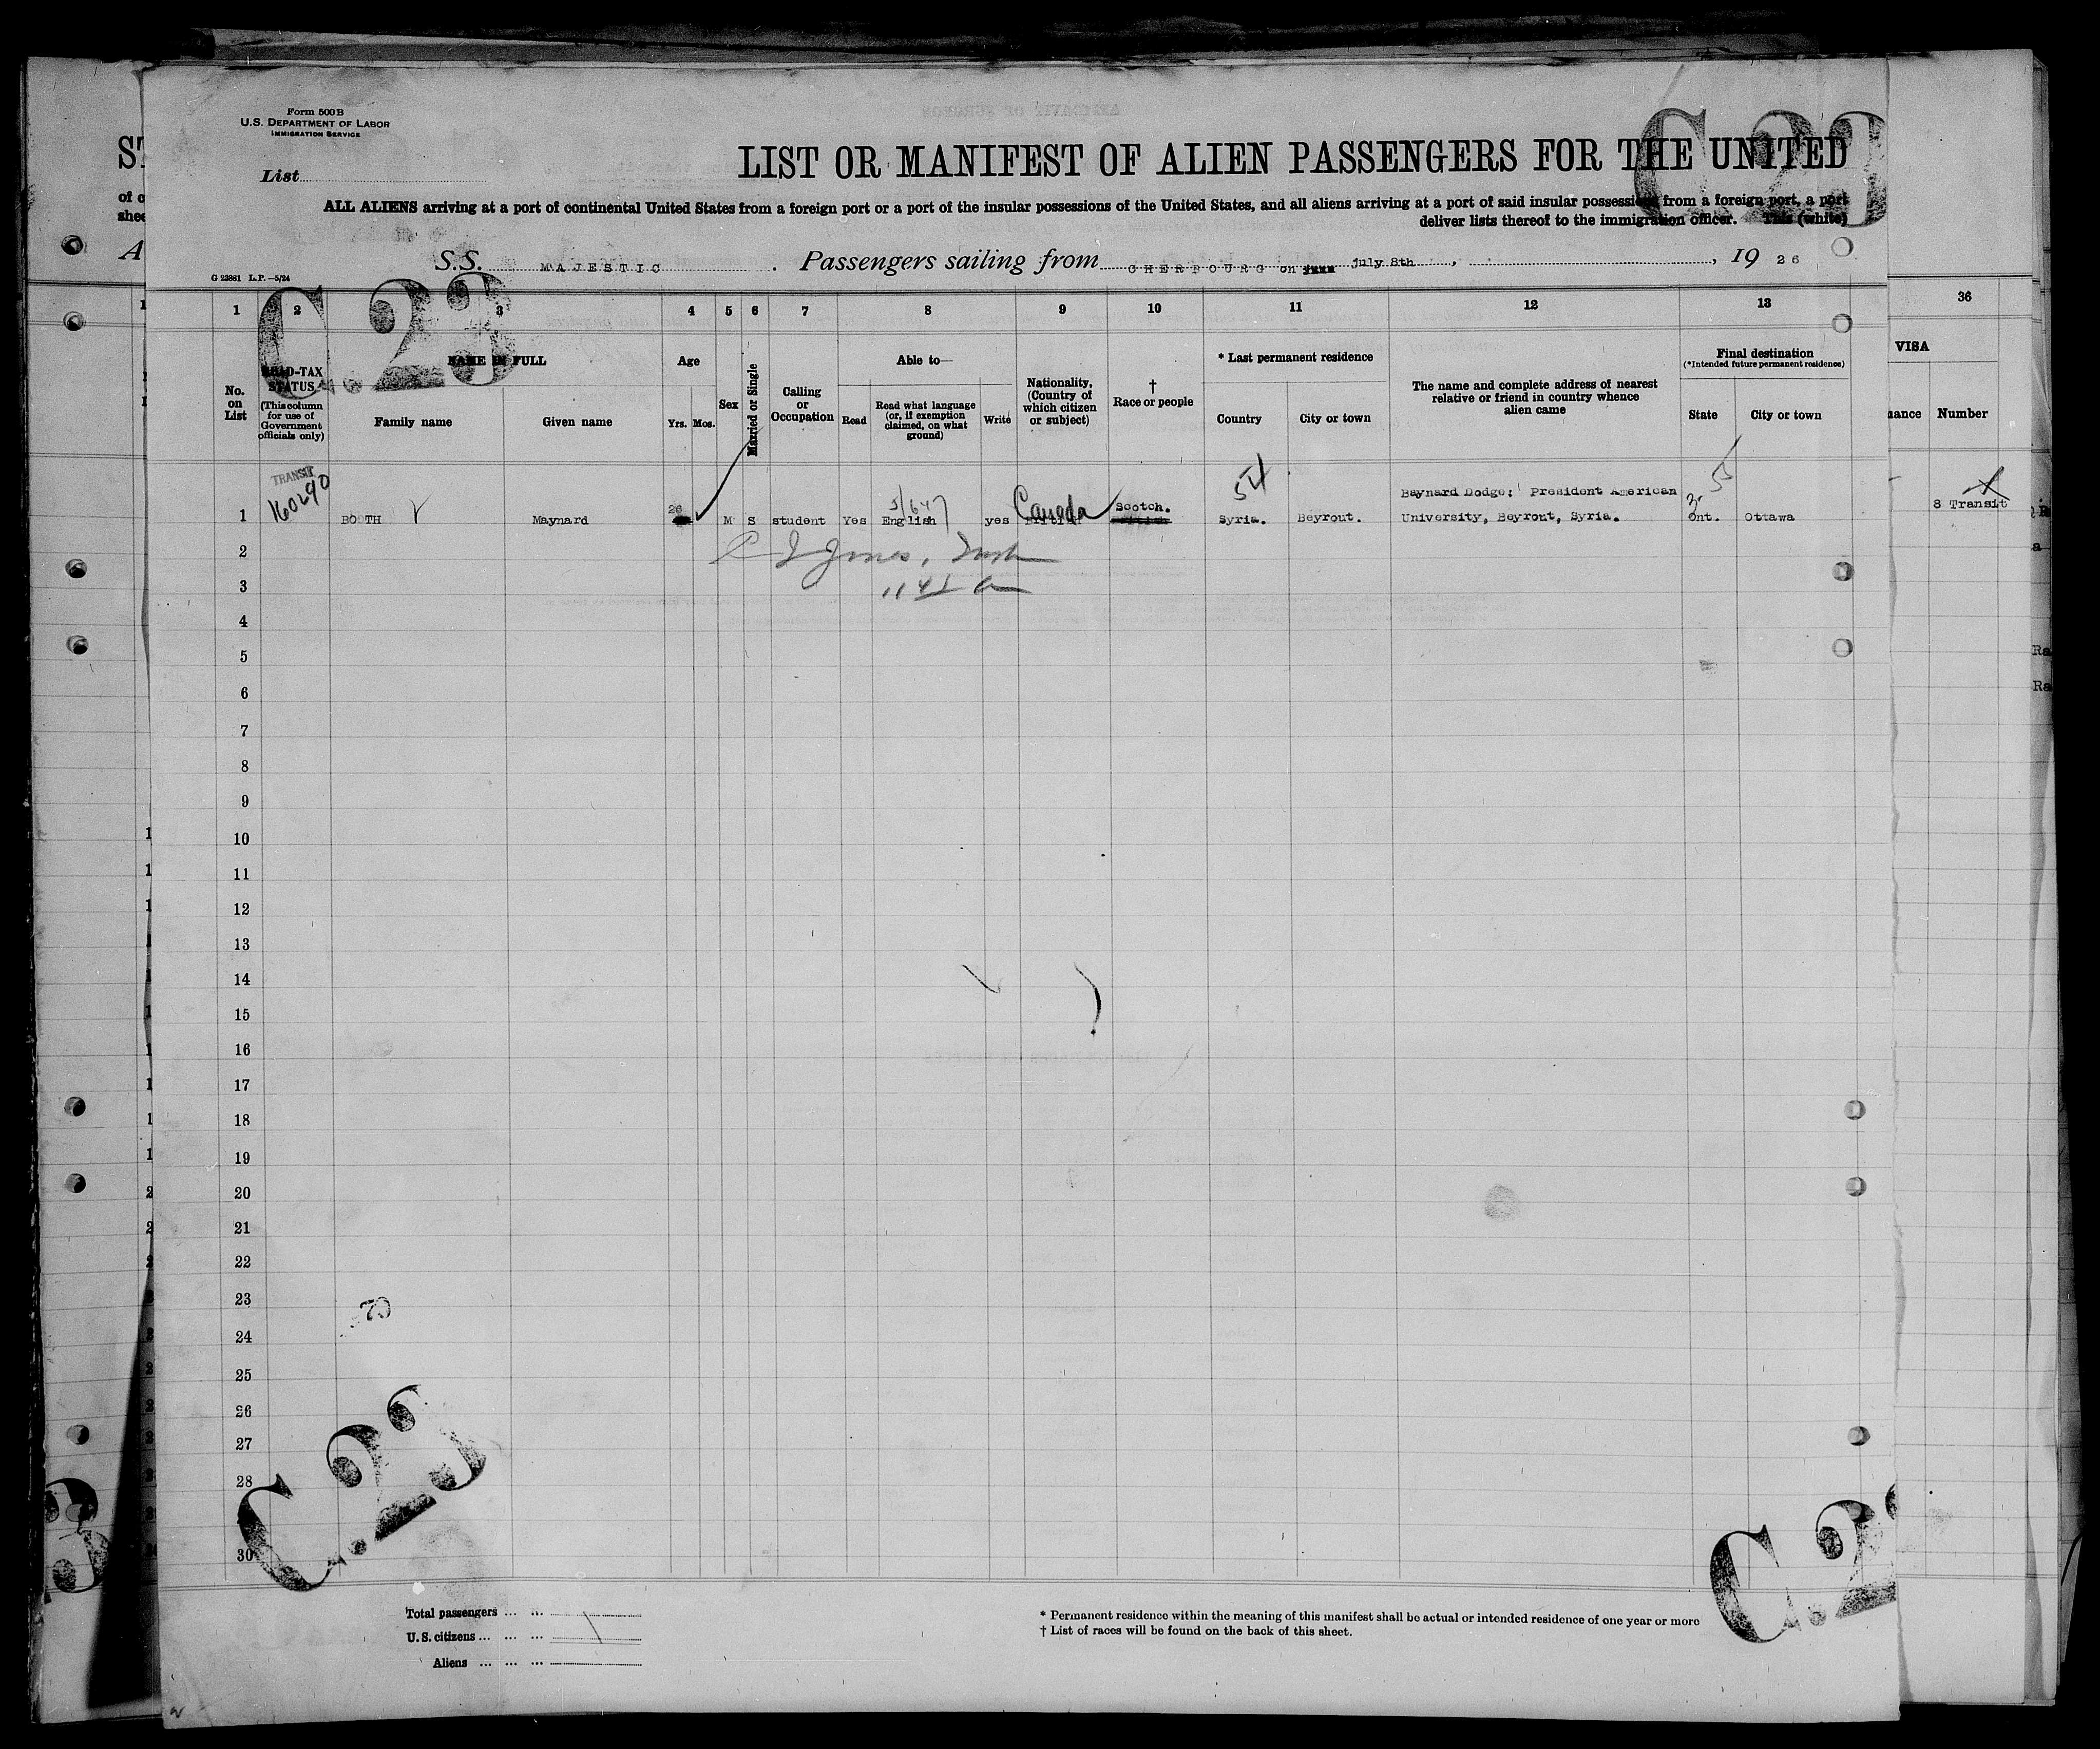 Form 500B
U.S. DEPARTMENT OF LABOR
IMMIGRATION SERVICE
List
C 23
LIST OR MANIFEST OF ALIEN PASSENGERS FOR THE UNITED
ALL ALIENS arriving at a port of continental United States from a foreign port or a port of the insular possessions of the United States, and all aliens arriving at a port of said insular possessions from a foreign port, a port
deliver lists thereof to the immigration officer. This (white)
S.S. MAJESTIC . Passengers sailing from CHERBOURG on July 8th , , 19 26
G 23861 L.P.—5/24
C.23
1 2 3 4 5 6 7 8 9 10 11 12 13 36
No. on List
HEAD-TAX STATUS
(This column for use of Government officials only)
NAME IN FULL
Family name
Given name
Age
Yrs. Mos.
Sex
Married or Single
Calling or Occupation
Able to—
Read
Read what language (or, if exemption claimed, on what ground)
Write
Nationality, (Country of which citizen or subject)
† Race or people
* Last permanent residence
Country
City or town
The name and complete address of nearest relative or friend in country whence alien came
Final destination
(*Intended future permanent residence)
State
City or town
VISA
Number
TRANSIT
160290
54
5/647
3-55
1 BOOTH Maynard 26 M S student Yes English yes Canada Scotch. Syria. Beyrout. Baynard Dodge; President American
University, Beyrout, Syria. Ont. Ottawa 8 Transit
2
3
4
5
6
7
8
9
10
11
12
13
14
15
16
17
18
19
20
21
22
23
24
25
26
27
28
30
70
C.23
C.2
Total passengers ... ...
U.S. citizens ... ... ...
Aliens ... ... ...
* Permanent residence within the meaning of this manifest shall be actual or intended residence of one year or more
† List of races will be found on the back of this sheet.